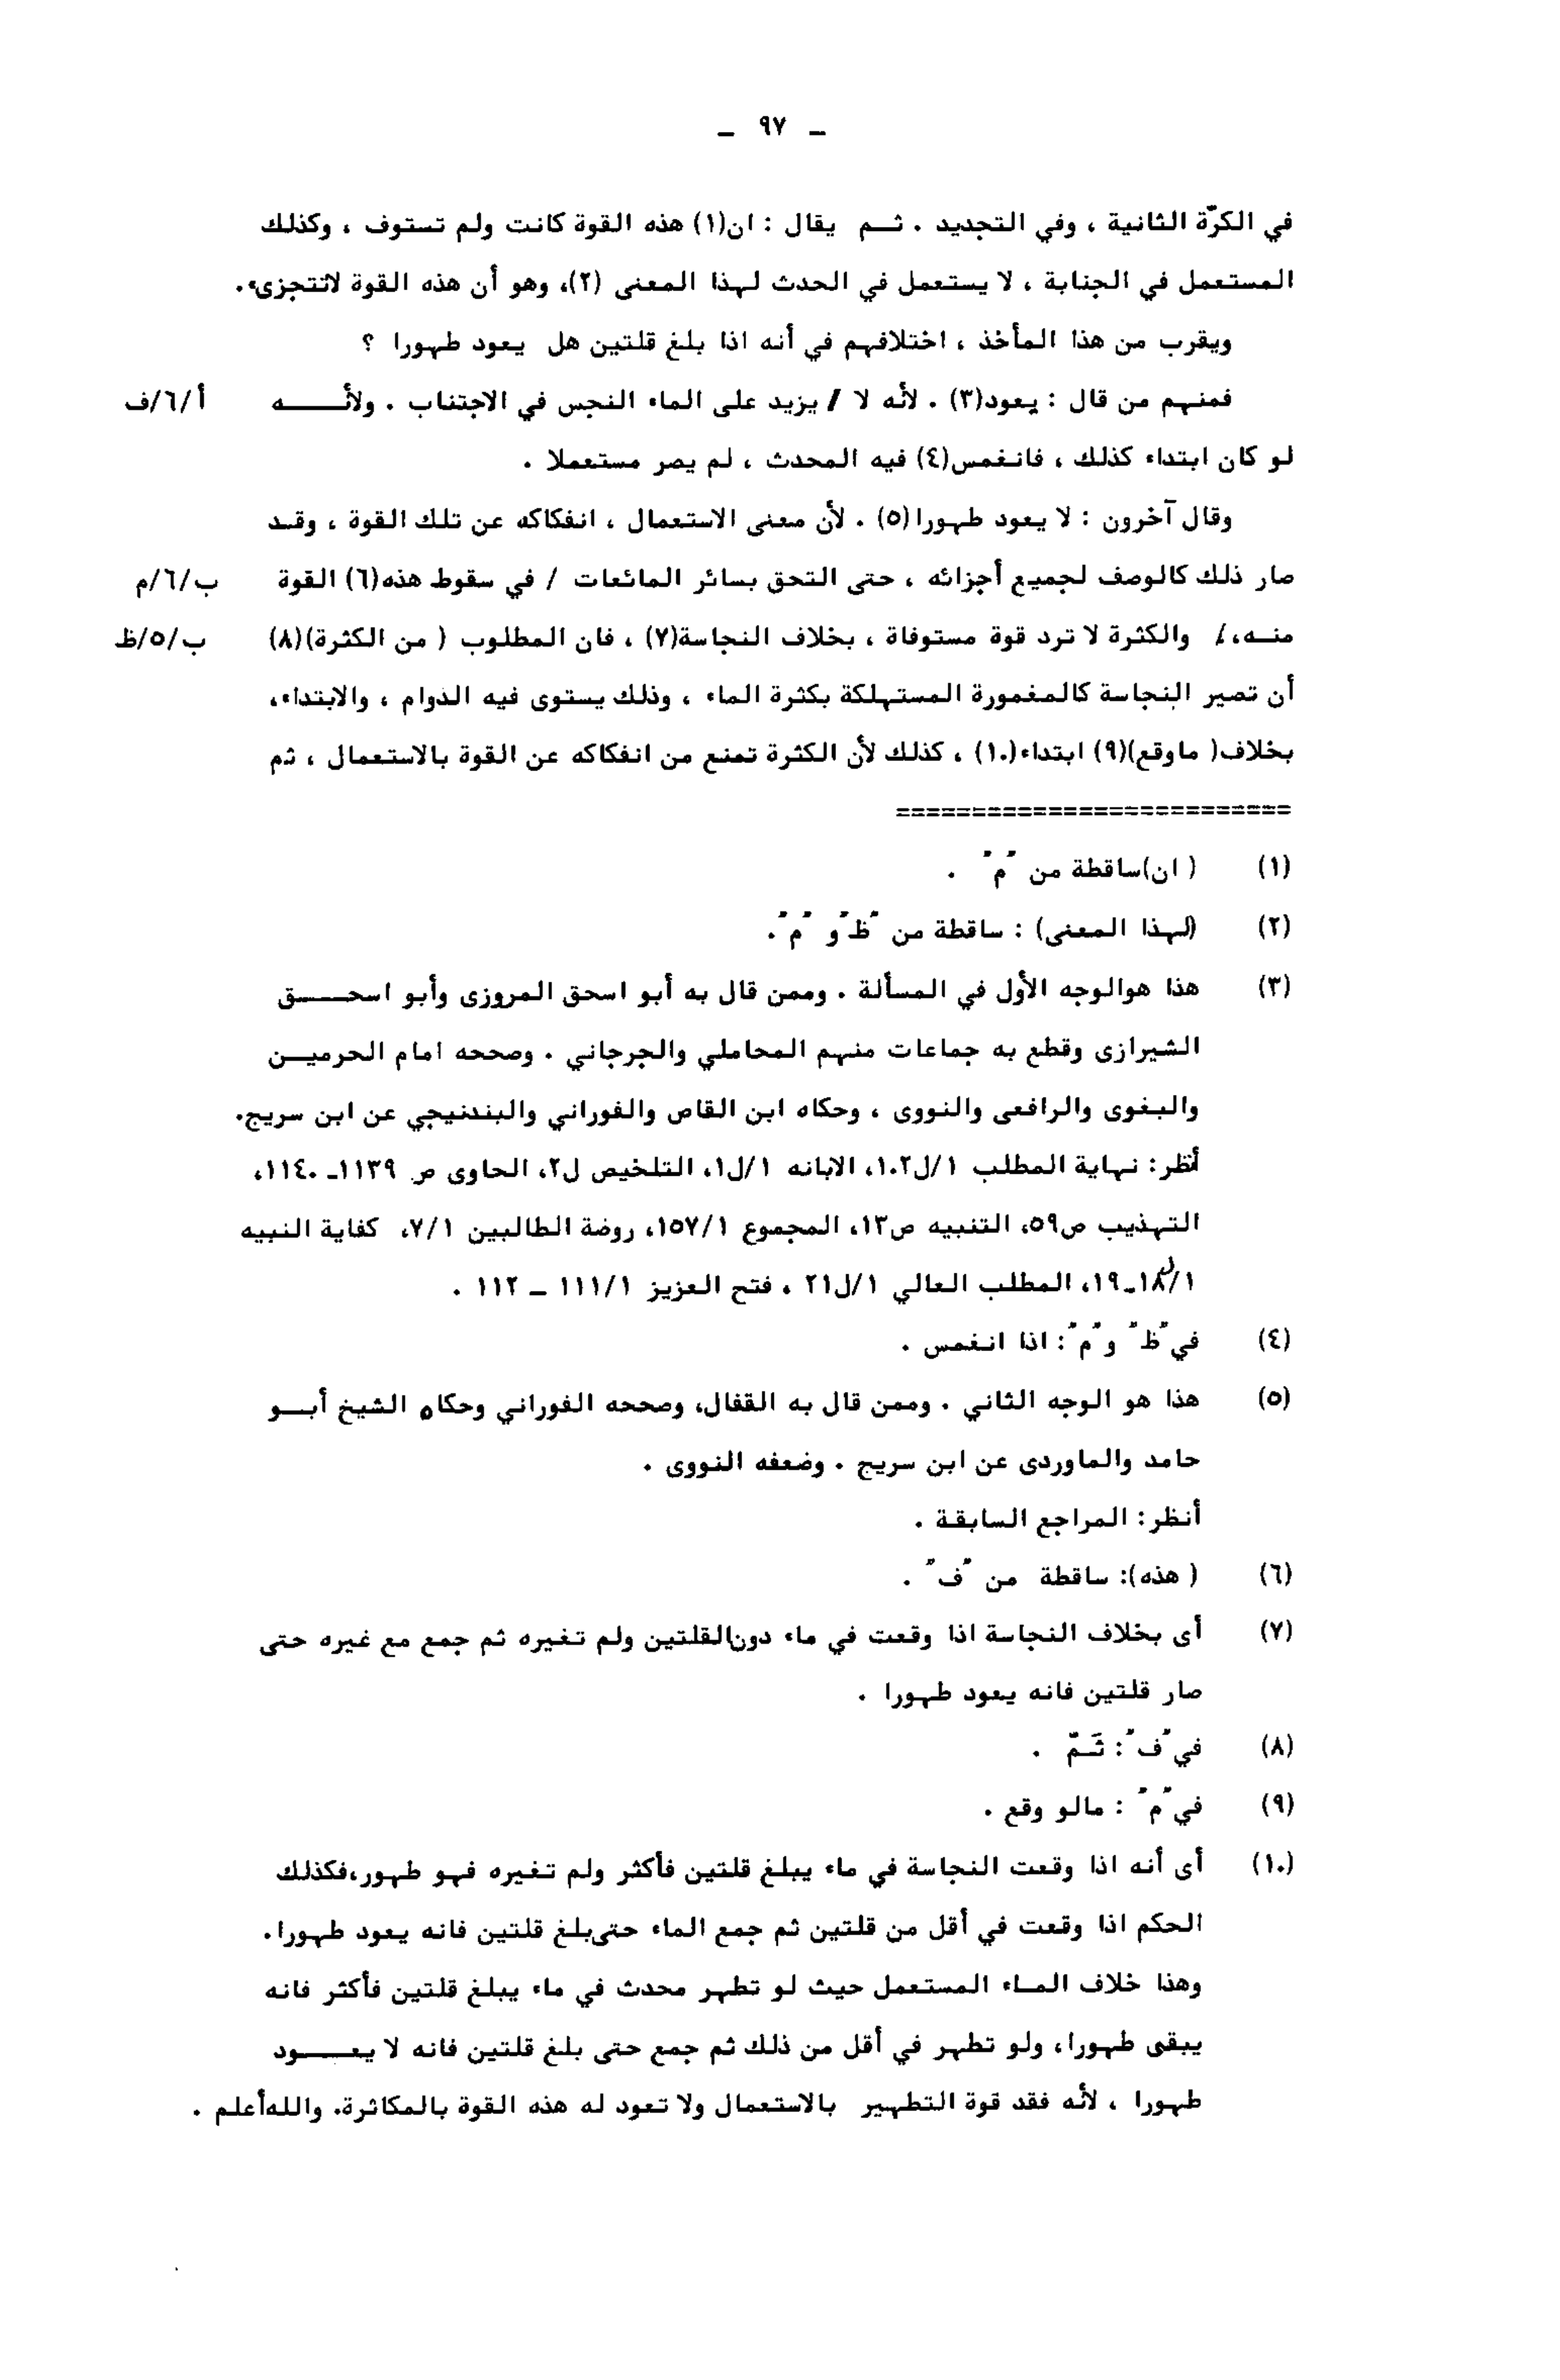 ـ ٩٧ ـ
في الكرّة الثانية ، وفي التجديد . ثم يقال : ان(١) هذه القوة كانت ولم تستوف ، وكذلك
المستعمل في الجنابة ، لا يستعمل في الحدث لهذا المعنى (٢)، وهو أن هذه القوة لاتتجزىء.
ويقرب من هذا المأخذ ، اختلافهم في أنه اذا بلغ قلتين هل يعود طهورا ؟
فمنهم من قال : يعود(٣) . لأنه لا / يزيد على الماء النجس في الاجتناب . ولأنه أ/٦/ف
لو كان ابتداء كذلك ، فانغمس(٤) فيه المحدث ، لم يصر مستعملا .
وقال آخرون : لا يعود طهورا (٥) . لأن معنى الاستعمال ، انفكاكه عن تلك القوة ، وقد
صار ذلك كالوصف لجميع أجزائه ، حتى التحق بسائر المائعات / في سقوط هذه(٦) القوة ب/٦/م
منه،/ والكثرة لا ترد قوة مستوفاة ، بخلاف النجاسة(٧) ، فان المطلوب ( من الكثرة)(٨) ب/٥/ظ
أن تصير النجاسة كالمغمورة المستهلكة بكثرة الماء ، وذلك يستوى فيه الدوام ، والابتداء،
بخلاف( ماوقع)(٩) ابتداء(١٠) ، كذلك لأن الكثرة تمنع من انفكاكه عن القوة بالاستعمال ، ثم
==========================
(١) ( ان)ساقطة من "م" .
(٢) (لهذا المعنى) : ساقطة من "ظ"و "م".
(٣) هذا هوالوجه الأول في المسألة . وممن قال به أبو اسحق المروزى وأبو اسحق
الشيرازى وقطع به جماعات منهم المحاملي والجرجاني . وصححه امام الحرمين
والبغوى والرافعى والنووى ، وحكاه ابن القاص والفوراني والبندنيجي عن ابن سريج.
أنظر: نهاية المطلب ١/ل١٠٢، الابانه ١/ل١، التلخيص ل٢، الحاوى ص ١١٣٩ـ ١١٤٠،
التهذيب ص٥٩، التنبيه ص١٣، المجموع ١٥٧/١، روضة الطالبين ٧/١، كفاية النبيه
١/ل١٨ـ١٩، المطلب العالي ١/ل٢١ ، فتح العزيز ١١١/١ ـ ١١٢ .
(٤) في"ظ" و"م": اذا انغمس .
(٥) هذا هو الوجه الثاني . وممن قال به القفال، وصححه الفوراني وحكاه الشيخ أبو
حامد والماوردى عن ابن سريج . وضعفه النووى .
أنظر: المراجع السابقة .
(٦) ( هذه): ساقطة من "ف" .
(٧) أى بخلاف النجاسة اذا وقعت في ماء دون القلتين ولم تغيره ثم جمع مع غيره حتى
صار قلتين فانه يعود طهورا .
(٨) في"ف": ثَمّ .
(٩) في"م" : مالو وقع .
(١٠) أى أنه اذا وقعت النجاسة في ماء يبلغ قلتين فأكثر ولم تغيره فهو طهور،فكذلك
الحكم اذا وقعت في أقل من قلتين ثم جمع الماء حتى بلغ قلتين فانه يعود طهورا.
وهذا خلاف الماء المستعمل حيث لو تطهر محدث في ماء يبلغ قلتين فأكثر فانه
يبقى طهورا، ولو تطهر في أقل من ذلك ثم جمع حتى بلغ قلتين فانه لا يعود
طهورا ، لأنه فقد قوة التطهير بالاستعمال ولا تعود له هذه القوة بالمكاثرة. والله أعلم .